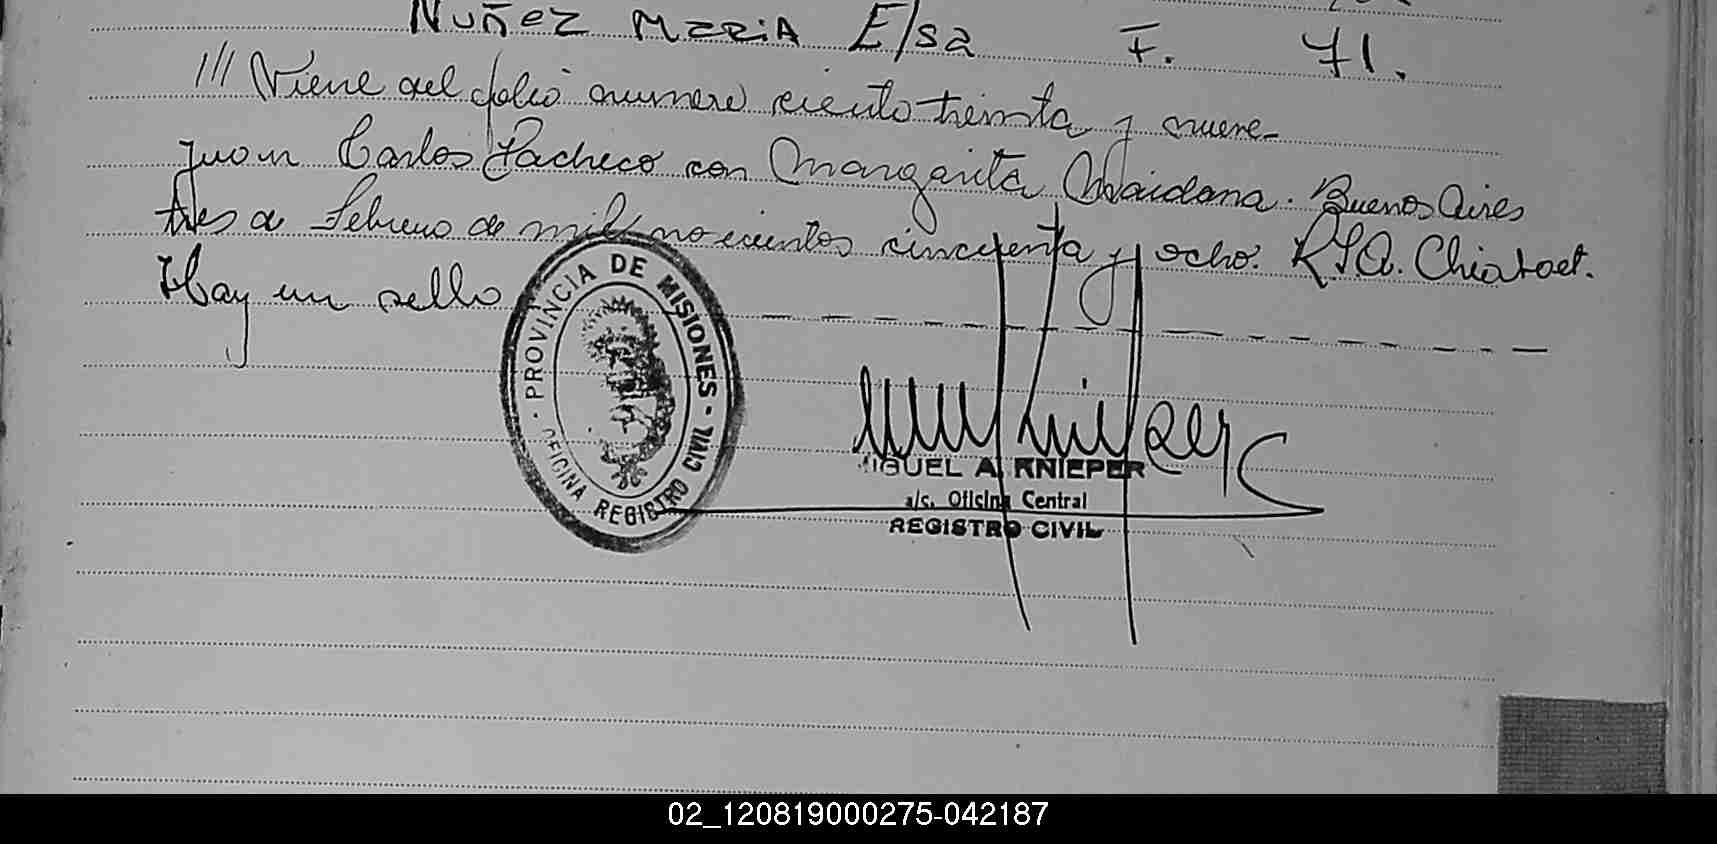 NUÑEZ MARIA Elsa F. 71.
/// Viene del folio numero ciento treinta y nueve-
Juan Carlos Pacheco con Margarita Maidana. Buenos Aires
tres de Febrero de mil novecientos cincuenta y ocho.
Hay un sello
PROVINCIA DE MISIONES -
OFICINA REGISTRO CIVIL
MIGUEL A. KNIEPER
a/c. Oficina Central
REGISTRO CIVIL
02_120819000275-042187